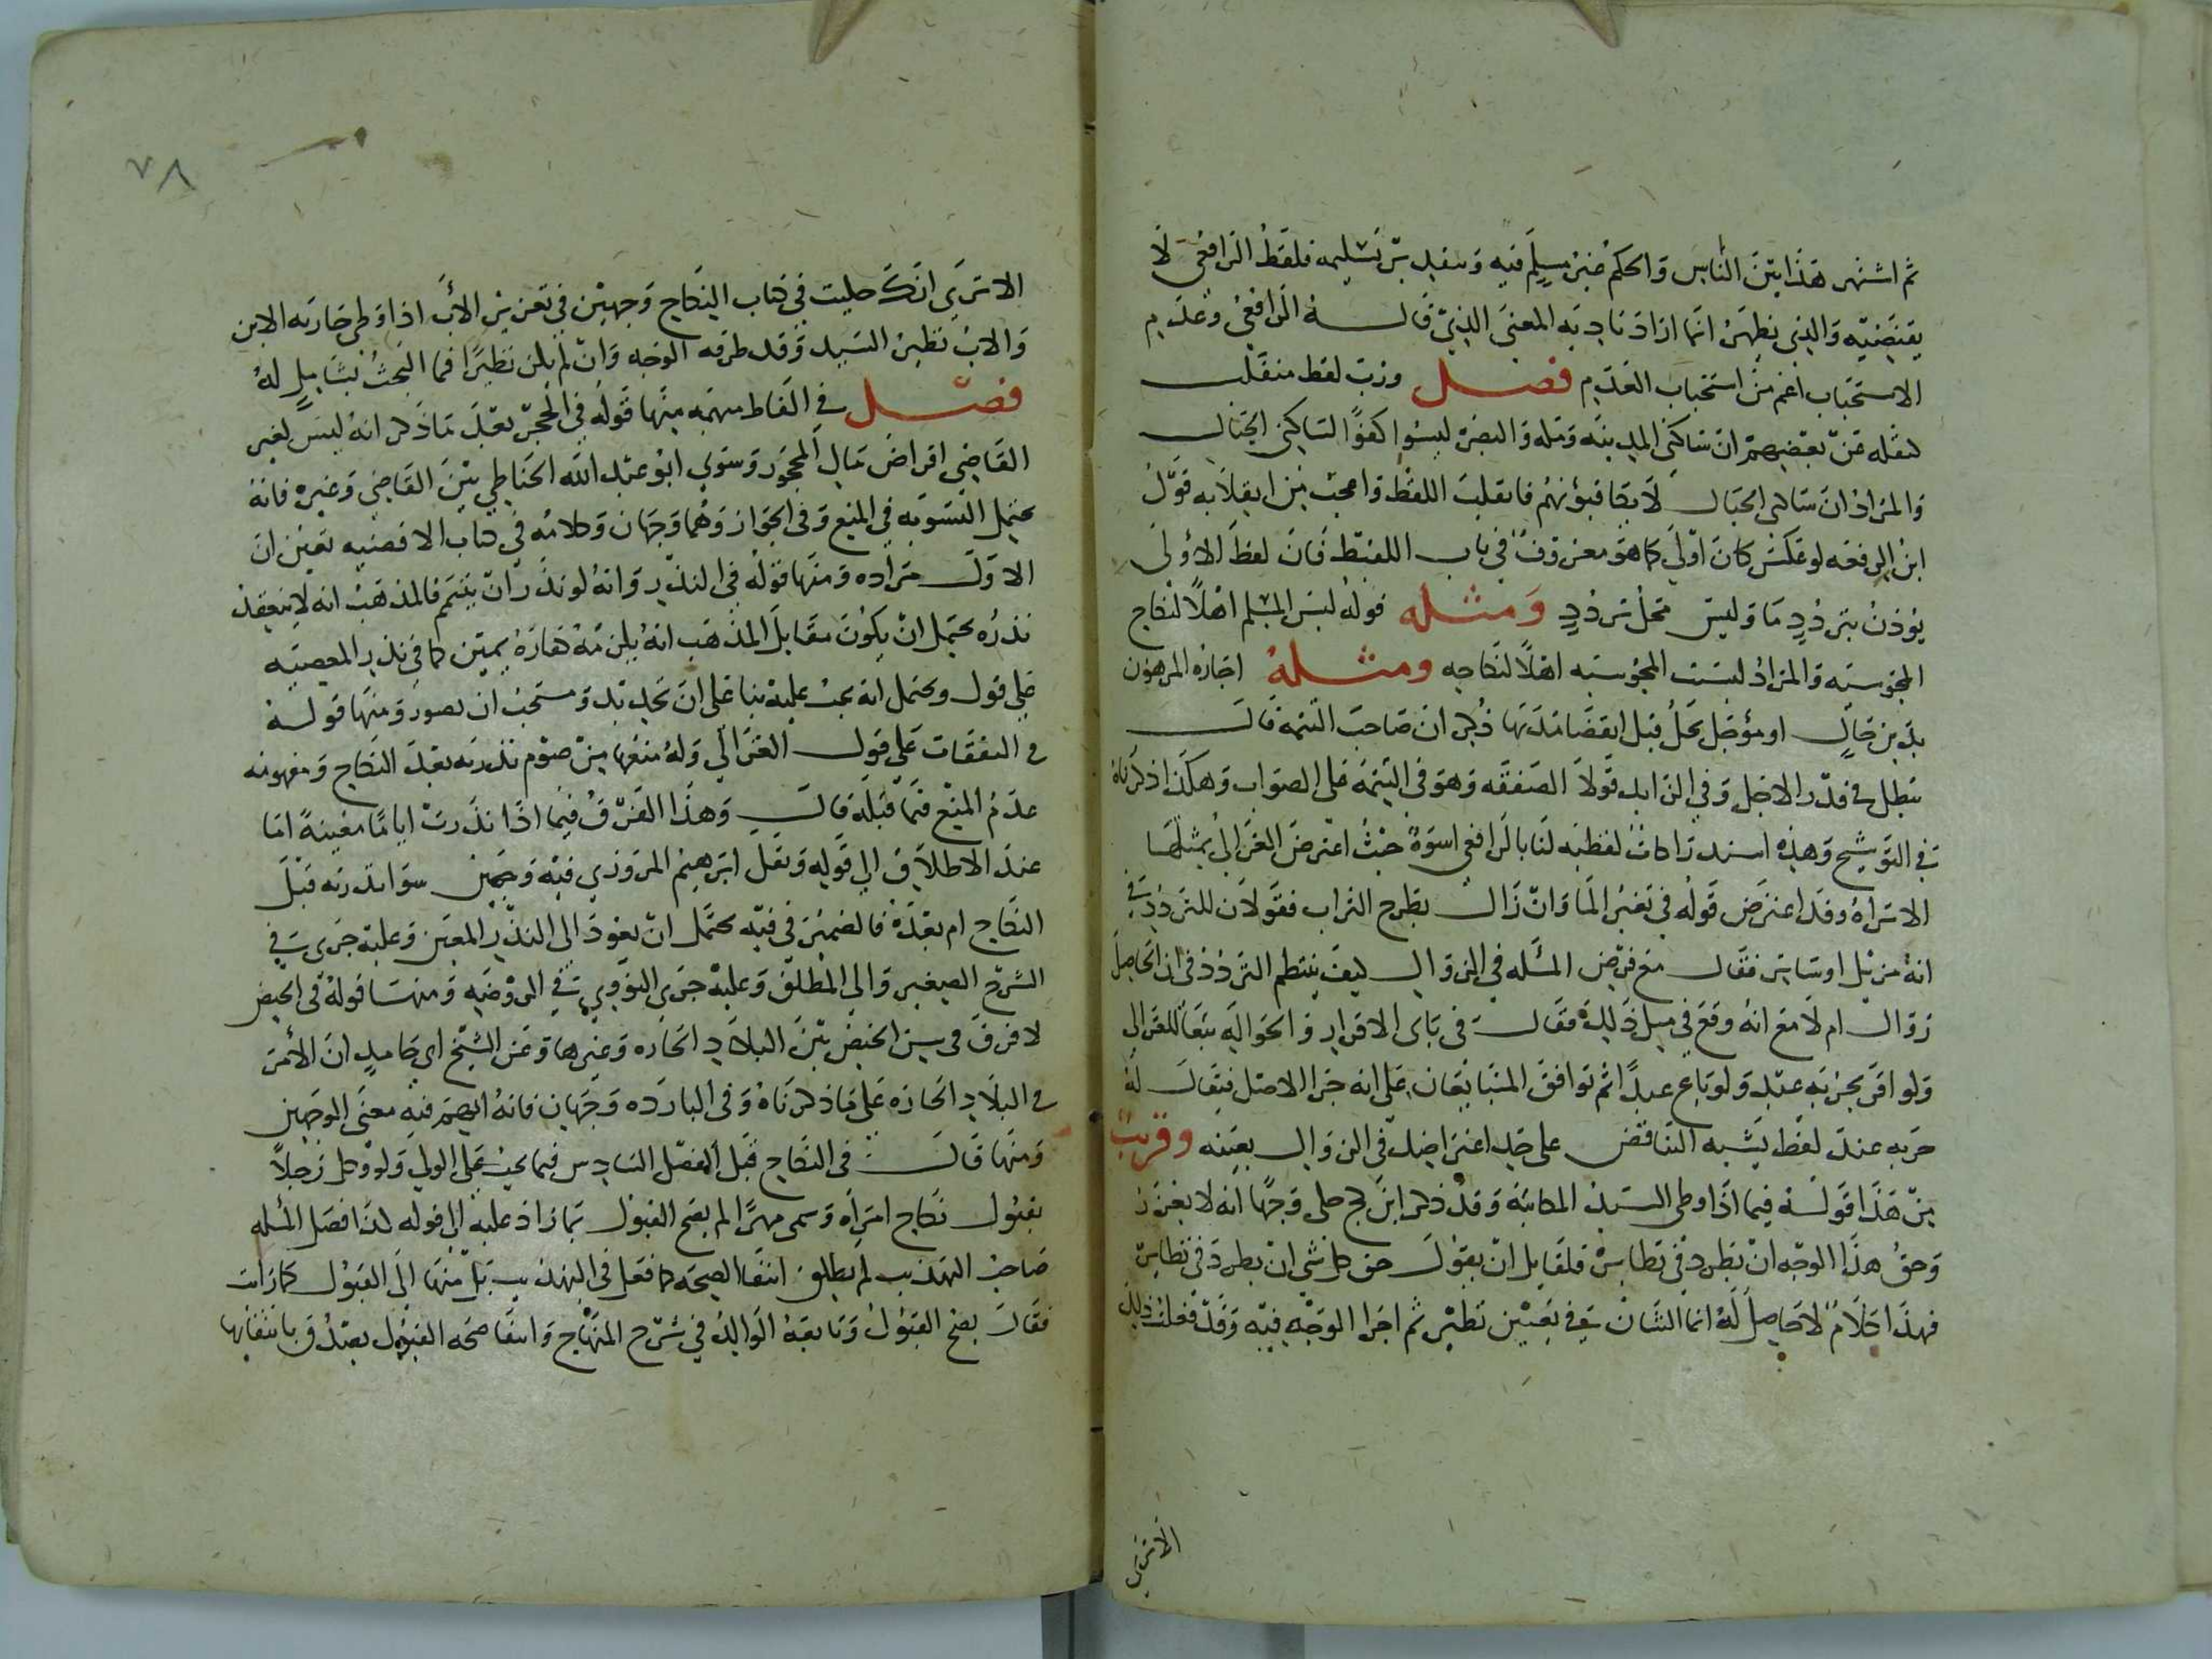 ثم اشتهر هذا بين الناس والحكم غير مسلم فيه وبتقدير تسليمه فلفظ الرافعي لا
يقتضيه والذي يظهر انما اراد نادبه المعنى الذي قاله الرافعي وعدم
الاستحباب اعم من استحباب العدم فصل ورب لفظ منقلب
كنقله عن بعضهم ان ساكني المدينة ومكه والبصرة ليسوا كفوًا لساكني الجبال
والمراد ان ساكني الجبال لا يكافئونهم فانقلب اللفظ واعجب من انقلابه قول
ابن الرفعه لو عكس كان اولى كما هو معروف في باب اللقيط فان لفظ الاولى
يوذن بتردد ما وليس محل تردد ومثله قوله ليس المسلم اهلًا لنكاح
المجوسية والمراد ليست المجوسيه اهلًا لنكاحه ومثله اجازه المرهون
بدين حال او مؤجل يحل قبل انقضا مدتها ذكر ان صاحب التتمة قال
تبطل في قدر الاجل وفي الزايد قولا الصفقه وهو في التتمة على الصواب وهكذا ذكرناه
في التوشيح وهذه استدراكات لفظيه لنا بالرافعي اسوة حيث اعترض الغزالي بمثلها
الا تراه وقد اعترض قوله في تغير الما وان زال بطرح التراب فقولان للتردد في
انه مزيل او ساتر فقال مع فرض المسله في الزوال كيف ينتظم التردد في ان الحاصل
زوال ام لا مع انه وقع في مثل ذلك فقال في بابي الاقرار والحوالة تبعًا للغزالي
ولو اقر بحرية عبد ولو باع عبدًا ثم توافق المتبايعان على انه حر الاصل فيقال له
حريه عبد لفظ يشبه التناقض على حد اعتراضك في الزوال بعينه وقريب
من هذا قوله فيما اذا وطي السيد المكاتبة وقد ذكر ابن كج حكى وجهًا انه لا يعزر
وحق هذا الوجه ان يطرد في نظايره فلقايل ان يقول حق كل شي ان يطرد في نظايره
فهذا كلام لا حاصل له انما الشان في تعيين نظير ثم اجرا الوجه فيه وقد فعلت ذلك
الا ترى
٧٨
الا ترى انك حكيت في كتاب النكاح وجهين في تعزير الاب اذا وطي جاريه الابن
والاب نظير السيد وقد طرقه الوجه وان لم يكن نظيرًا فما البحث بشامل له
فصل في الفاظ مبهمه منها قوله في الحجر بعد ما ذكر انه ليس لغير
القاضي اقراض مال المحجور وسوى ابو عبد الله الحناطي بين القاضي وغيره فانه
يحتمل التسويه في المنع وفي الجواز وهما وجهان وكلامه في كتاب الاقضيه يعين ان
الاول مراده ومنها قوله في النذر وانه لو نذر ان يتيمم فالمذهب انه لا ينعقد
نذره يحتمل ان يكون مقابل المذهب انه يلزمه كفارة يمين كما في نذر المعصيه
على قول ويحتمل انه يجب عليه بنا على ان تجديده مستحب ان تصور ومنها قوله
في النفقات على قول الغزالي وله منعها من صوم نذرته بعد النكاح ومفهومه
عدم المنع فيما قبله قال وهذا الفرق فيما اذا نذرت اياما معينة اما
عند الاطلاق الى قوله ونقل ابرهيم المروزي فيه وجهين سوا نذرته قبل
النكاح ام بعده فالضمير في فيه يحتمل ان يعود الى النذر المعين وعليه جرى في
الشرح الصغير والى المطلق وعليه جرى النووي في الروضه ومنها قوله في الحيض
لا فرق في سن الحيض بين البلاد الحاره وغيرها وعن الشيخ ابي حامد ان الامر
في البلاد الحاره على ما ذكرناه وفي البارده وجهان فانه ابهم فيه معنى الوجهين
ومنها قال في النكاح قبل الفصل السادس فيما يجب على الولي ولو وكل رجلًا
بقبول نكاح امراة وسمى مهرًا لم يصح القبول بما زاد عليه الى قوله كذا فصل المسله
صاحب التهذيب لم يطلق انتفا الصحه كما فعل في التهذيب بل منها الى القبول كما رايت
فقال يصح القبول وتابعه الوالد في شرح المنهاج وانتفا صحه القبول يصدق بانتفايها